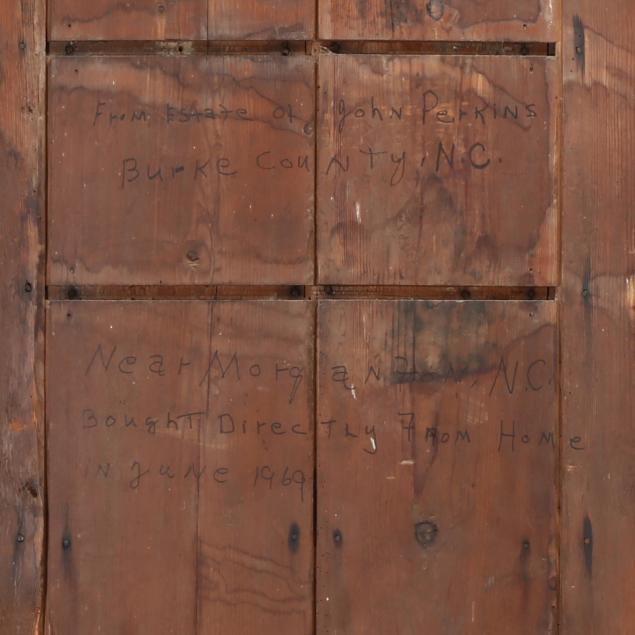 From Estate of John Perkins
Burke County, N.C.
Near Morganton, N.C.
Bought Directly From Home
in June 1969